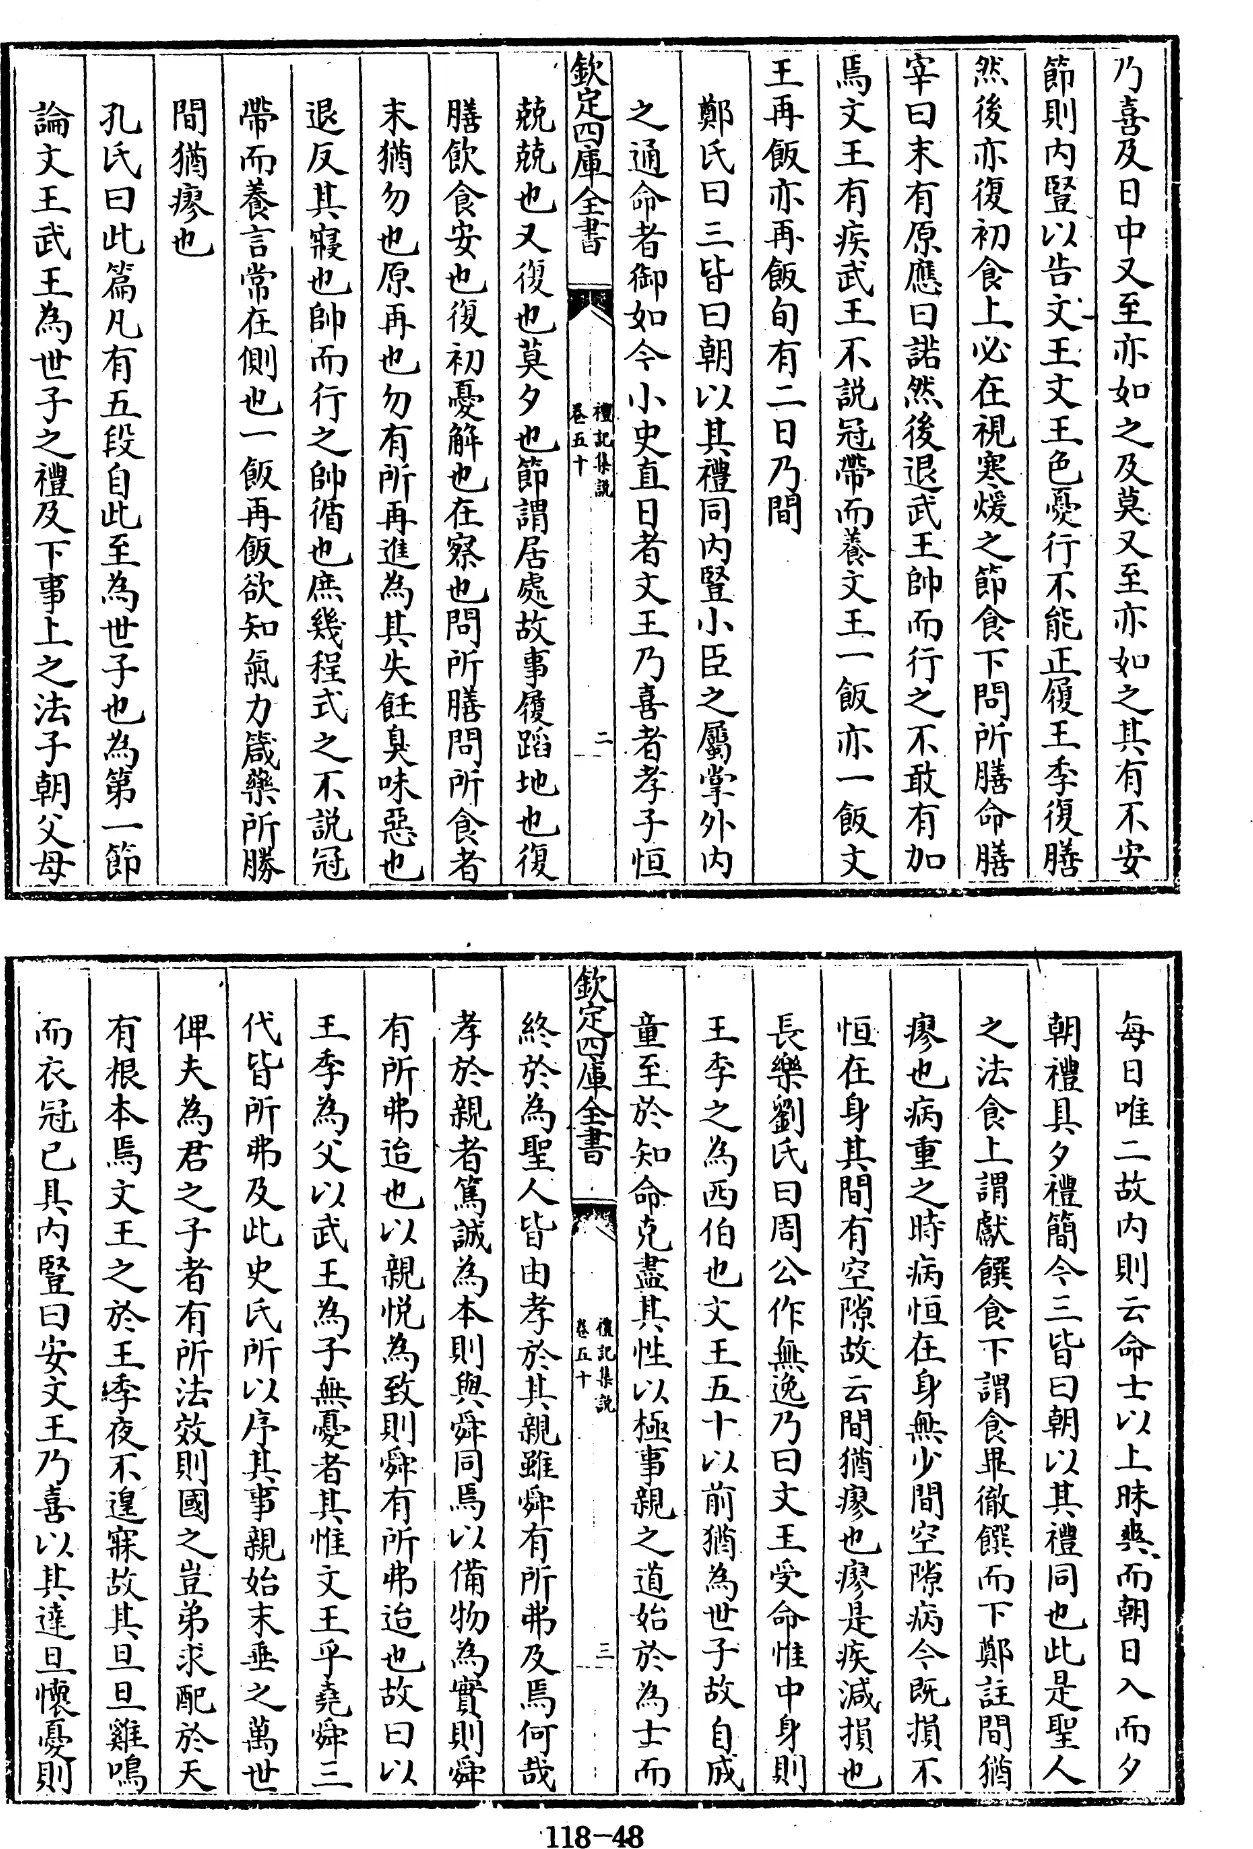 乃喜及日中又至亦如之及莫又至亦如之其有不安
節則内豎以告文王文王色憂行不能正履王季復膳
然後亦復初食上必在視寒煖之節食下問所膳命膳
宰曰末有原應曰諾然後退武王帥而行之不敢有加
焉文王有疾武王不説冠帶而養文王一飯亦一飯文
王再飯亦再飯旬有二日乃間
鄭氏曰三皆曰朝以其禮同内豎小臣之屬掌外内
之通命者御如今小史直日者文王乃喜者孝子恒
欽定四庫全書
禮記集説
卷五十
二
兢兢也又復也莫夕也節謂居處故事履蹈地也復
膳飲食安也復初憂解也在察也問所膳問所食者
末猶勿也原再也勿有所再進為其失飪臭味惡也
退反其寢也帥而行之帥循也庶幾程式之不説冠
帶而養言常在側也一飯再飯欲知氣力箴藥所勝
間猶瘳也
孔氏曰此篇凡有五段自此至為世子也為第一節
論文王武王為世子之禮及下事上之法子朝父母
每日唯二故内則云命士以上昧爽而朝日入而夕
朝禮具夕禮簡今三皆曰朝以其禮同也此是聖人
之法食上謂獻饌食下謂食畢徹饌而下鄭註間猶
瘳也病重之時病恒在身無少間空隙病今既損不
恒在身其間有空隙故云間猶瘳也瘳是疾減損也
長樂劉氏曰周公作無逸乃曰文王受命惟中身則
王季之為西伯也文王五十以前猶為世子故自成
童至於知命克盡其性以極事親之道始於為士而
欽定四庫全書
禮記集説
卷五十
三
終於為聖人皆由孝於其親雖舜有所弗及焉何哉
孝於親者篤誠為本則與舜同焉以備物為實則舜
有所弗迨也以親悦為致則舜有所弗迨也故曰以
王季為父以武王為子無憂者其惟文王乎堯舜三
代皆所弗及此史氏所以序其事親始末垂之萬世
俾夫為君之子者有所法效則國之豈弟求配於天
有根本焉文王之於王季夜不遑寐故其旦旦雞鳴
而衣冠已具内豎曰安文王乃喜以其達旦懷憂則
118-48